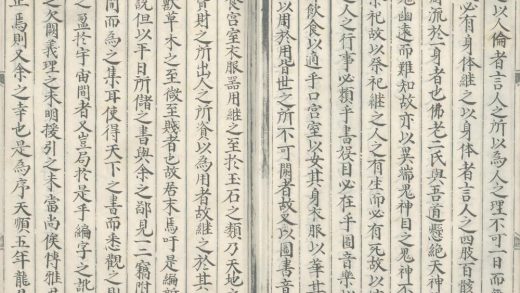 以人倫者言人之所以為人之理不可一日而無
必有身体継之以身体者言人之四肢百骸
周流於一身者也佛老二氏與吾道懸絶天神
鬼幽遠而難知故亦以異端鬼神目之鬼神不
祭祀故以祭祀継之人之有生而必有死故以
人之行事必頼乎書役目必在乎圖音樂以
飲食以適乎口宮室以安其身衣服以華其
以周於用皆世之所不可闕者故又以圖書音
食宮室衣服器用継之至於玉石之類乃天地之
貨財之所出人之所資以為用者故継之於其
獸草木之至微至賤者也故居末焉吁是編
說但以平日所儲之書與余之鄙見一二竊附
間而為之集耳使得天下之書而悉觀之則
之盈於宇宙間者又豈局於是乎編字之訛
之欠闕義理之未明援引之未當尚俟博雅
正焉則又余之幸也是為序天順五年龍